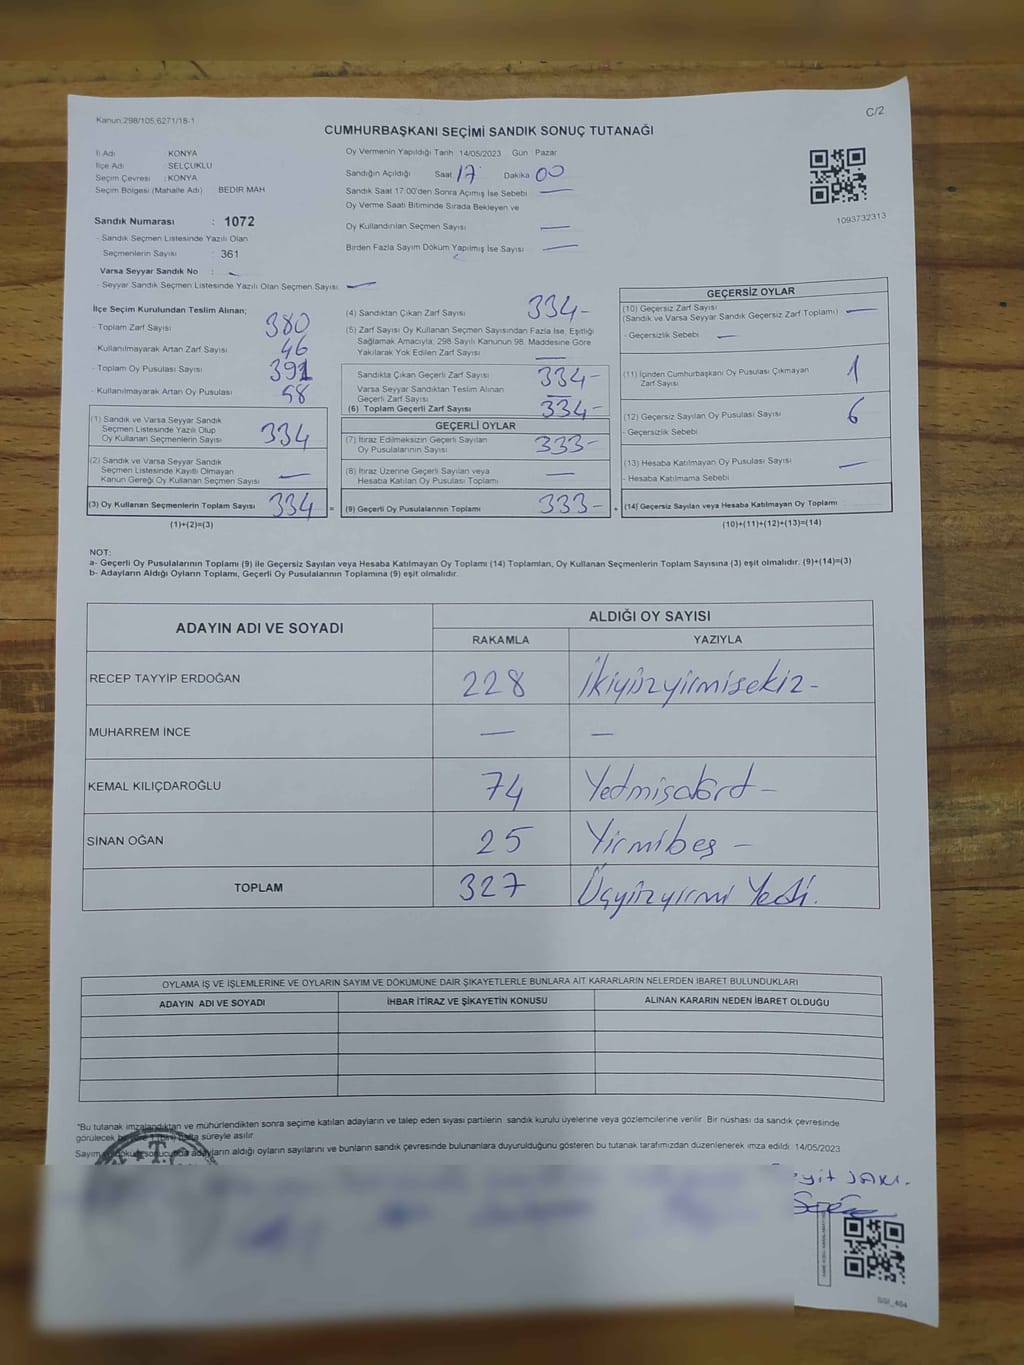 Kanun:298/105,6271/18-1
C/2
CUMHURBAŞKANI SEÇİMİ SANDIK SONUÇ TUTANAĞI
İl Adı : KONYA
İlçe Adı : SELÇUKLU
Seçim Çevresi : KONYA
Seçim Bölgesi (Mahalle Adı) BEDİR MAH
Sandık Numarası : 1072
- Sandık Seçmen Listesinde Yazılı Olan
Seçmenlerin Sayısı : 361
Varsa Seyyar Sandık No : -
- Seyyar Sandık Seçmen Listesinde Yazılı Olan Seçmen Sayısı: —
Oy Vermenin Yapıldığı Tarih 14/05/2023 Gün Pazar
Sandığın Açıldığı Saat 17 Dakika 00
Sandık Saat 17:00'den Sonra Açımış İse Sebebi —
Oy Verme Saati Bitiminde Sırada Bekleyen ve
Oy Kullandırılan Seçmen Sayısı —
Birden Fazla Sayım Döküm Yapılmış İse Sayısı —
1093732313
İlçe Seçim Kurulundan Teslim Alınan;
- Toplam Zarf Sayısı 380
- Kullanılmayarak Artan Zarf Sayısı 46
- Toplam Oy Pusulası Sayısı 391
- Kullanılmayarak Artan Oy Pusulası 58
(1) Sandık ve Varsa Seyyar Sandık
Seçmen Listesinde Yazılı Olup
Oy Kullanan Seçmenlerin Sayısı 334
(2) Sandık ve Varsa Seyyar Sandık
Seçmen Listesinde Kayıtlı Olmayan
Kanun Gereği Oy Kullanan Seçmen Sayısı —
(3) Oy Kullanan Seçmenlerin Toplam Sayısı 334 =
(1)+(2)=(3)
(4) Sandıktan Çıkan Zarf Sayısı 334-
(5) Zarf Sayısı Oy Kullanan Seçmen Sayısından Fazla İse, Eşitliği
Sağlamak Amacıyla; 298 Sayılı Kanunun 98. Maddesine Göre
Yakılarak Yok Edilen Zarf Sayısı —
Sandıkta Çıkan Geçerli Zarf Sayısı 334-
Varsa Seyyar Sandıktan Teslim Alınan
Geçerli Zarf Sayısı —
(6) Toplam Geçerli Zarf Sayısı 334-
GEÇERLİ OYLAR
(7) İtiraz Edilmeksizin Geçerli Sayılan
Oy Pusulalarının Sayısı 333-
(8) İtiraz Üzerine Geçerli Sayılan veya
Hesaba Katılan Oy Pusulası Toplamı —
(9) Geçerli Oy Pusulalarının Toplamı 333- +
GEÇERSİZ OYLAR
(10) Geçersiz Zarf Sayısı
(Sandık ve Varsa Seyyar Sandık Geçersiz Zarf Toplamı) —
- Geçersizlik Sebebi : —
(11) İçinden Cumhurbaşkanı Oy Pusulası Çıkmayan
Zarf Sayısı 1
(12) Geçersiz Sayılan Oy Pusulası Sayısı 6
- Geçersizlik Sebebi
(13) Hesaba Katılmayan Oy Pusulası Sayısı —
- Hesaba Katılmama Sebebi
(14) Geçersiz Sayılan veya Hesaba Katılmayan Oy Toplamı
(10)+(11)+(12)+(13)=(14)
NOT:
a- Geçerli Oy Pusulalarının Toplamı (9) ile Geçersiz Sayılan veya Hesaba Katılmayan Oy Toplamı (14) Toplamları, Oy Kullanan Seçmenlerin Toplam Sayısına (3) eşit olmalıdır. (9)+(14)=(3)
b- Adayların Aldığı Oyların Toplamı, Geçerli Oy Pusulalarının Toplamına (9) eşit olmalıdır.
ADAYIN ADI VE SOYADI
ALDIĞI OY SAYISI
RAKAMLA YAZIYLA
RECEP TAYYİP ERDOĞAN 228 İkiyüzyirmisekiz-
MUHARREM İNCE — —
KEMAL KILIÇDAROĞLU 74 Yetmişdört-
SİNAN OĞAN 25 Yirmibeş -
TOPLAM 327 Üçyüzyirmi Yedi.
OYLAMA İŞ VE İŞLEMLERİNE VE OYLARIN SAYIM VE DÖKÜMÜNE DAİR ŞİKAYETLERLE BUNLARA AİT KARARLARIN NELERDEN İBARET BULUNDUKLARI
ADAYIN ADI VE SOYADI İHBAR İTİRAZ VE ŞİKAYETİN KONUSU ALINAN KARARIN NEDEN İBARET OLDUĞU
"Bu tutanak imzalandıktan ve mühürlendikten sonra seçime katılan adayların ve talep eden siyasi partilerin sandık kurulu üyelerine veya gözlemcilerine verilir. Bir nüshası da sandık çevresinde
görülecek bir yere 1 (bir) hafta süreyle asılır
Sayım dökümü sonucunda adayların aldığı oyların sayılarını ve bunların sandık çevresinde bulunanlara duyurulduğunu gösteren bu tutanak tarafımızdan düzenlenerek imza edildi. 14/05/2023
T.C.